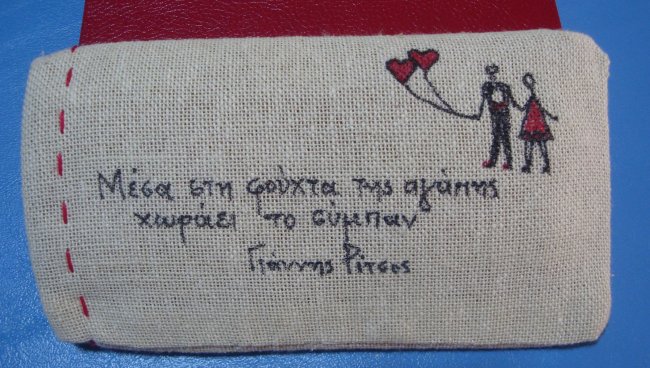 Μέσα στη φούχτα της αγάπης
χωράει το σύμπαν
Γιάννης Ρίτσος